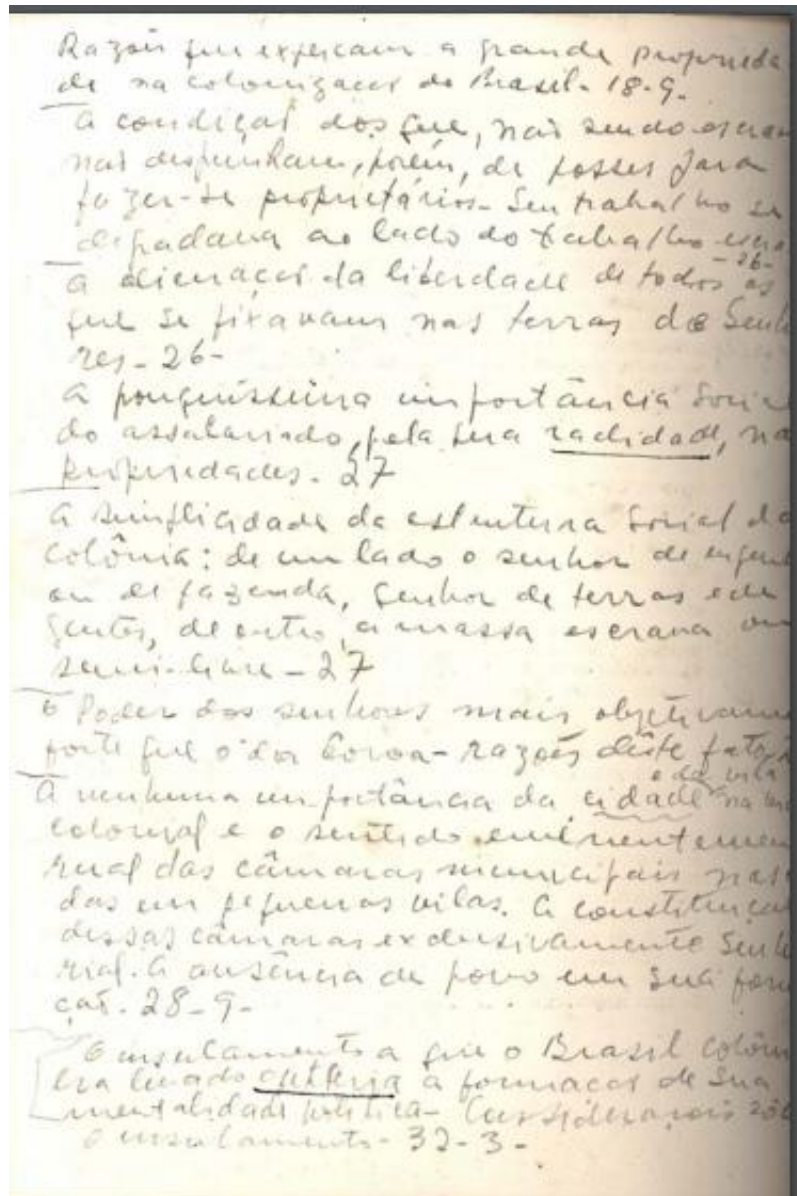 Razões que explicam a grande proprieda
de na colonização do Brasil - 18-9.
A condição dos que, não sendo escra
não dispunham, porém, de posses para
fazer-se proprietários - Seu trabalho se
degradava ao lado do trabalho escra
-26-
A alienação da liberdade de todos os
que se fixavam nas terras do Senho
res - 26 -
A pouquíssima importância Socia
do assalariado, pela sua raridade, na
propriedades. 27
A simplicidade da estrutura Social da
colônia: de um lado o senhor de engen
ou de fazenda, Senhor de terras e de
gentes, de outro, a massa escrava ou
semi-livre - 27
O Poder dos senhores mais objetivame
forte que o da Coroa - razões dêste fato
e da vila
A nenhuma importância da cidade na
colonial e o sentido eminentemen
rural das câmaras municipais nas
das em pequenas vilas. A constituiçã
dessas câmaras exclusivamente Senho
rial. A ausência de povo em sua form
ção. 28-9-
O insulamento a que o Brasil colôn
era a formação de Sua
mentalidade política - Considerações sôb
o insulamento - 32-3-